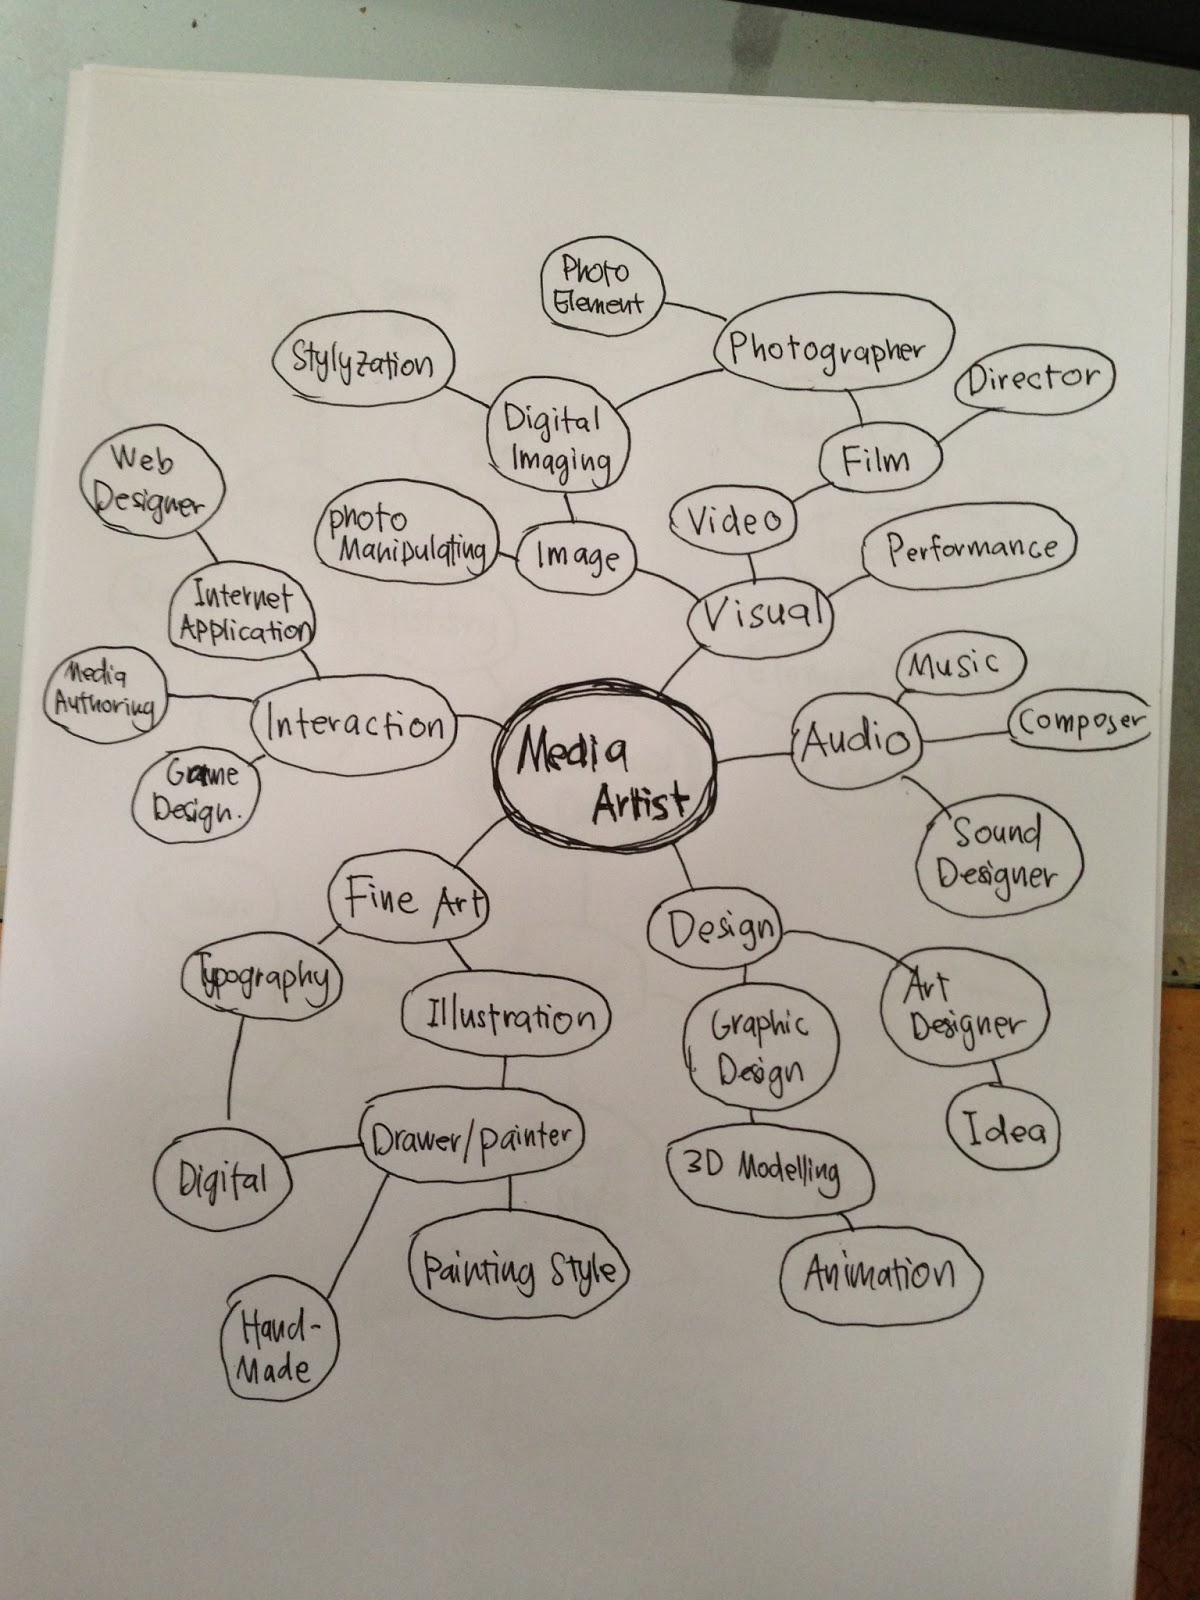 Photo
Element
Photographer
Stylyzation
Director
Digital
Imaging
Film
Web
Designer
Video
photo
Manipulating
Image
Performance
Internet
Application
Visual
Music
Media
Authoring
Interaction
Composer
Audio
Media
Artist
Game
Design.
Sound
Designer
Fine Art
Design
Typography
Art
Designer
Illustration
Graphic
Design
Idea
Drawer/painter
3D Modelling
Digital
Painting Style
Animation
Hand-
Made